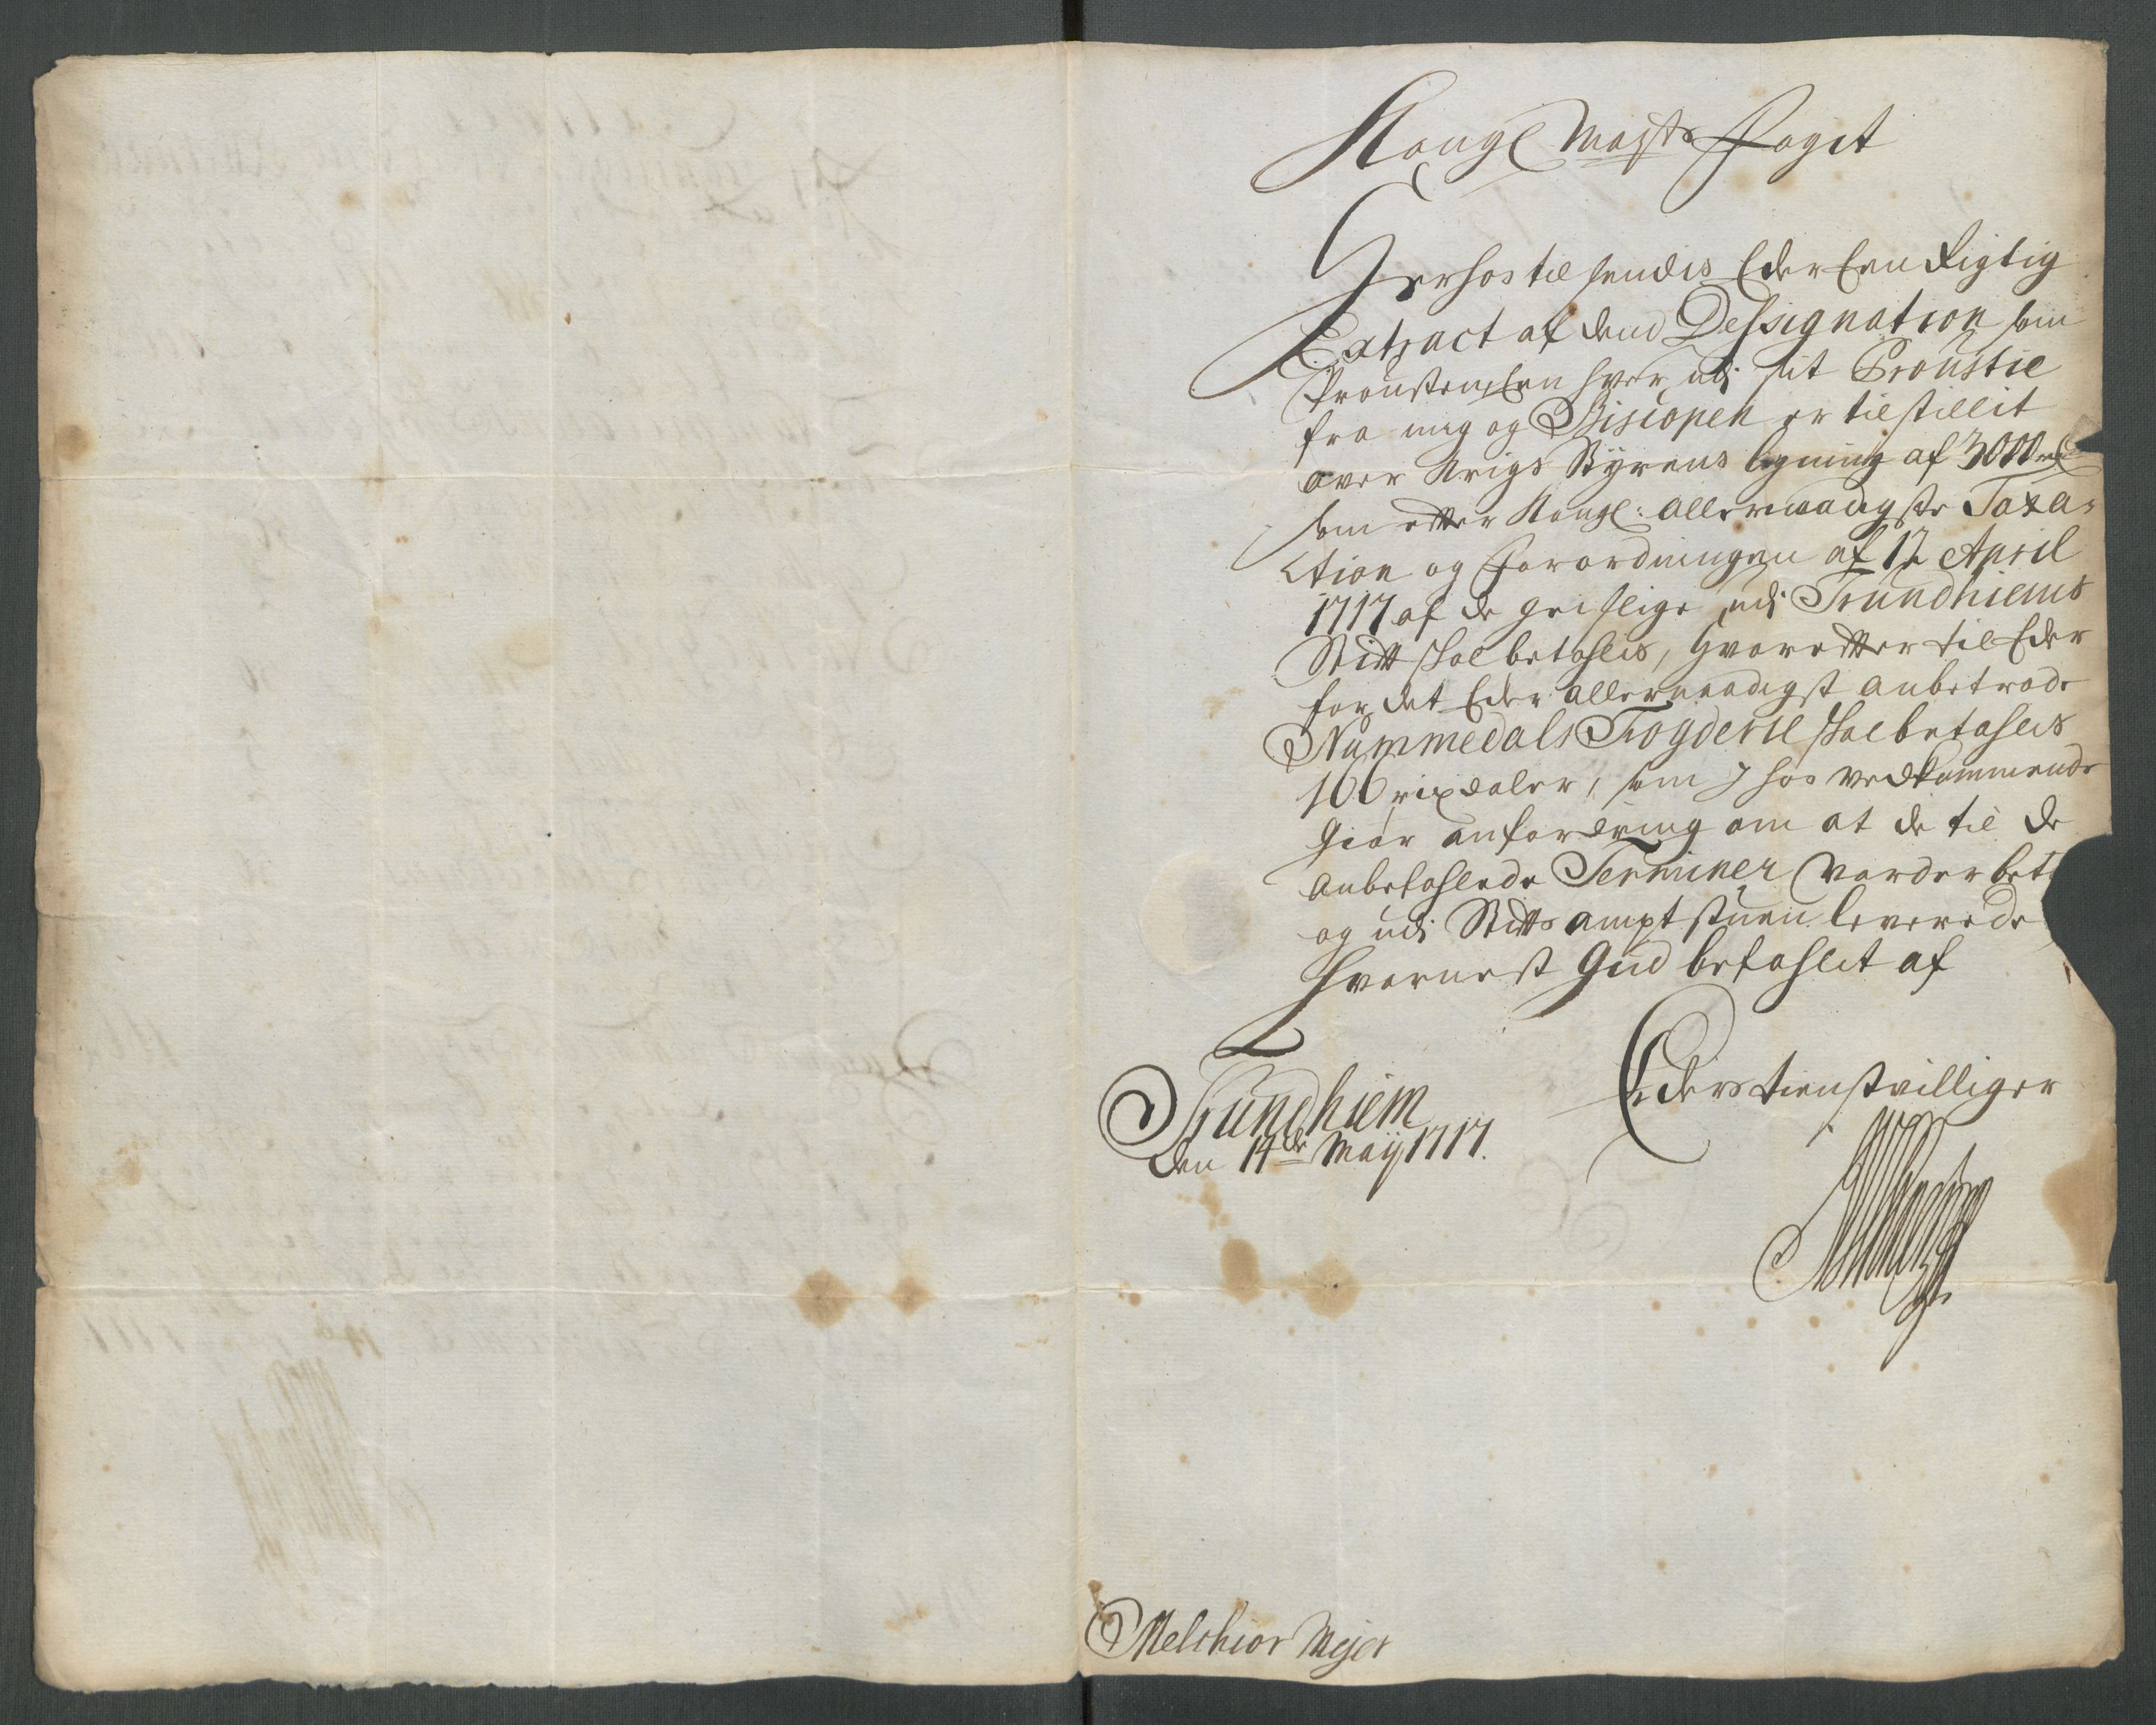 Kongl Maÿts Foget
Herhos til sendis Eder Een Rigtig
Extract af dend Dessignation som
Proustene Een hver udj sit Proustie
fra mig og Biscopen er tilstillit
over Krigs Styrens ligning af 3000 rd
som efter Kongl: allernaadigste Taxa-
tion og Forordningen af 12 April
1717 af de geistlige udj Trundhiems
Stift skal betahles, Hvorefter til Eder
for det Eder allernaadigst anbetrode
Nummedals Fogderie skal betahles
166 rixdaler, som I hos vedkommende
giør anfordring om at de til de
anbefahlede Terminer vorder bet
og udj Stiftsamptstuen leverede
Hvornest Gud befahlet af
Eders tienstvilliger
Trundhiem
den 14de Maÿ 1717.
Melchior Mejer